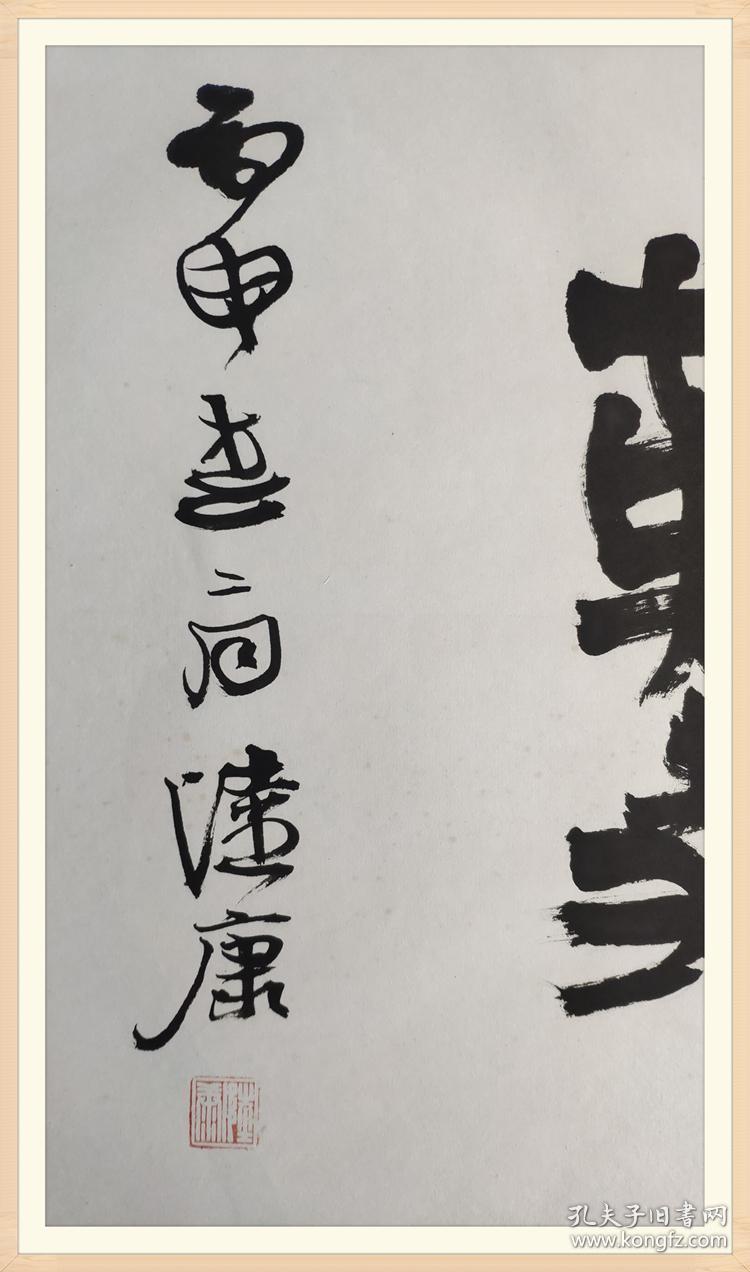 丙申春二月陸康
陸康
孔夫子旧書网
www.kongfz.com